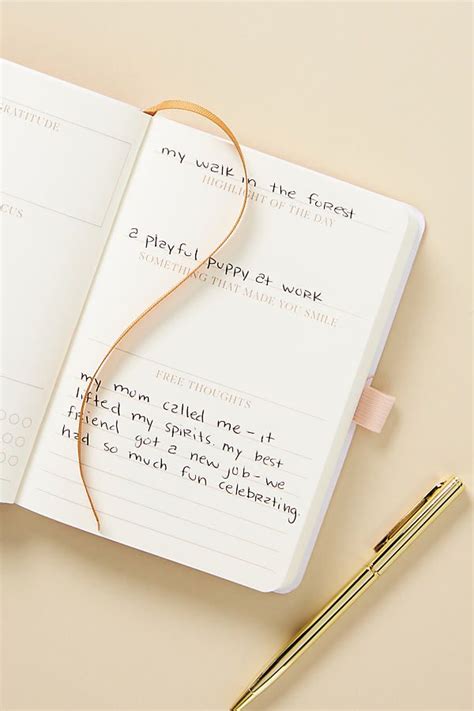 GRATITUDE
my walk in the forest
HIGHLIGHT OF THE DAY
a playful puppy at work
SOMETHING THAT MADE YOU SMILE
FREE THOUGHTS
my mom called me - it
lifted my spirits. my best
friend got a new job - we
had so much fun celebrating.